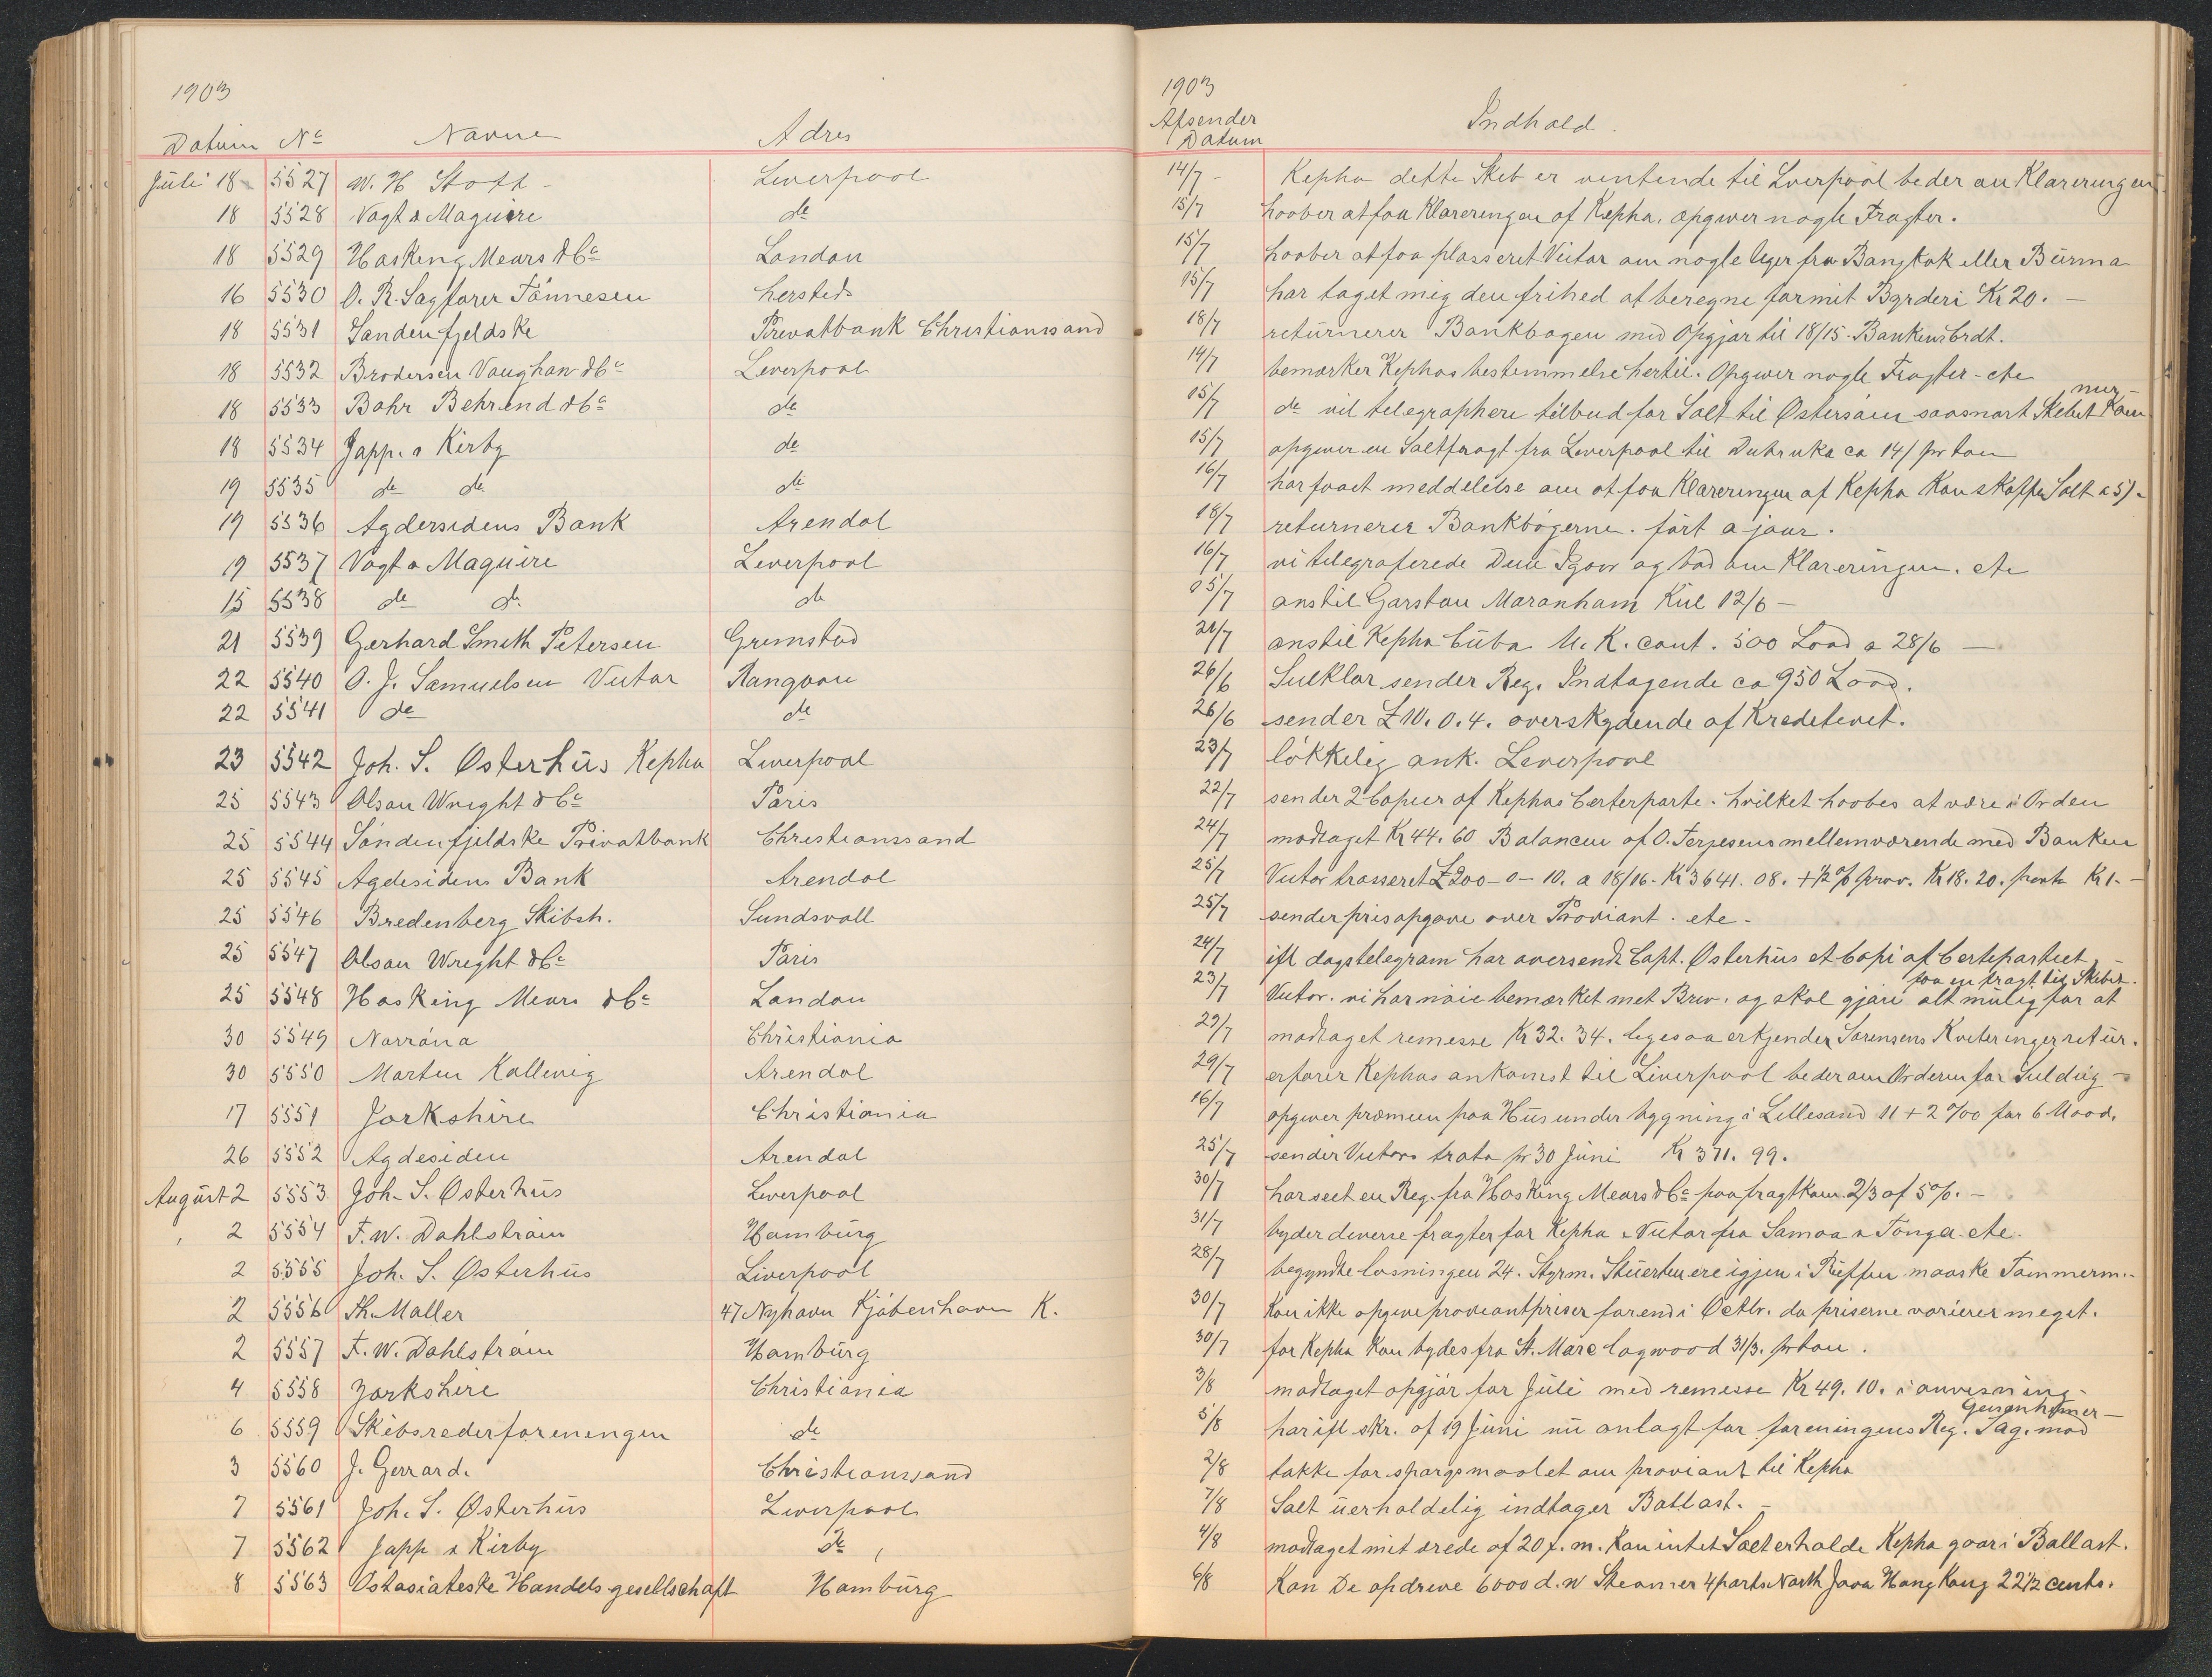 1903
Datum No Navne Adres
Juli 18 5527 W. H Stott - Liverpool
18 5528 Vogt & Maguire do
18 5529 Hasking Mears & Co London
16 5530 O. R. Sagfører Tönnesen hersteds
18 5531 Søndenfjeldske Privatbank Christianssand
18 5532 Brodersen Vaughan & Co Liverpool
18 5533 Bahr Behrend & Co do
18 5534 Japp & Kirby do
19 5535 do do do
19 5536 Agdersidens Bank Arendal
19 5537 Vogt & Maguire Liverpool
15 5538 do do do
21 5539 Gerhard Smith Petersen Grimstad
22 5540 O. J. Samuelsen Victor Rangoon
22 5541 do do
23 5542 Joh. S. Østerhüs Kepha Liverpool
25 5543 Olsan Wright & Co Paris
25 5544 Söndenfjeldske Privatbank Christianssand
25 5545 Agdesidens Bank Arendal
25 5546 Bredenberg Skibsh. Sundsvall
25 5547 Olsan Wright & Co Paris
25 5548 Hasking Mears & Co London
30 5549 Norröna Christiania
30 5550 Morten Kallevig Arendal
17 5551 Jorkshire Christiania
26 5552 Agdesiden Arendal
August 2 5553 Joh. S. Østerhüs Liverpool
2 5554 F. W. Dahlström Hamburg
2 5555 Joh. S. Østerhüs Liverpool
2 5556 Th. Møller 47 Nyhavn Kjöbenhavn K.
2 5557 F. W. Dahlström Hamburg
4 5558 Yorkshire Christiania
6 5559 Skibsrederforeningen do
3 5560 J. Gerrard. Christianssand
7 5561 Joh. S. Østerhüs Liverpool
7 5562 Japp & Kirby do
8 5563 Ostasiateske Handelsgesellschaft Hamburg
1903
Afsender Datum Indhold.
14/7 - Kepha dette Skib er ventende til Liverpool beder om Klareringen
15/7 hoober at faa Klareringen af Kepha, opgiver nogle Fragter.
15/7 hoober at faa plasseret Victor om nogle Uger fra Bangkok eller Bürma
15/7 har taget mig den frihed at beregne for mit Byrderi Kr 20. -
18/7 returnerer Bankbogen med Opgjør til 18/15. Bankens Crdt.
14/7 bemærker Kephas bestemmelse hertil. Opgiver nogle Fragter - etc
15/7 do vil telegraphere tilbud for Salt til Østersøen saasnart Skibet kom
15/7 opgiver en Saltfragt fra Liverpool til Dubruka ca 14/ pr ton
16/7 har faaet meddelelse om at faa Klareringen af Kepha Kan skaffe Salt a 5/-
18/7 returnerer Bankbøgerne. fört a jour.
16/7 vi telegraferede Dem Igaar og bad om Klareringen. etc
15/7 anstil Garston Maranham Kul 12/6 -
21/7 anstil Kepha Cuba U. K. cont. 500 Load a 28/6 -
26/6 Seilklar sender Reg. Indtagende ca 950 Load.
26/6 sender £ 10. 0. 4. overskydende af Kreditivet.
23/7 lökkelig ank. Liverpool
22/7 sender 2 Copier af Kephas Certeparte. hvilket hoobes at være i Orden
24/7 modtaget Kr 44. 60 Balancen af O. Terjesens mellemværende med Banken
25/7 Victor trasseret £ 200 - 0 - 10. a 18/16 - Kr 3641. 08. + 1/2 % prov. Kr 18. 20. porto Kr 1. -
25/7 sender prisopgave over Proviant. etc -
24/7 ifl dagstelegram har oversendt Capt. Østerhüs et Copi af Certepartiet -
faa en fragt til Skibet.
23/7 Victor. vi har nöie bemærket met Brev. og skal gjøre alt mulig for at
29/7 modtaget remesse Kr 32. 34. ligesaa erkjender Sørensens Kvitteringer retur.
29/7 erfarer Kephas ankomst til Liverpool beder om Orderen for Seildug -
16/7 opgiver præmien paa Hüs under bygning i Lillesand 11 + 2 ‰ for 6 Maad.
25/7 sender Victors trata pr 30 Juni Kr 371. 99.
30/7 har seet en Reg. fra Hasking Mears & Co paa fragtkom. 2/3 af 5 %. -
31/7 byder diverse fragter for Kepha & Victor fra Samoa & Tonga etc.
28/7 begyndte losningen 24. Styrm. Stuerten ere igjen i Röffen maaske Tømmerm. -
30/7 Kan ikke opgive proviantpriser førend i Octbr. da priserne varierer meget.
30/7 for Kepha Kan bydes fra St. Marc logwood 31/3. pr ton.
3/8 modtaget opgjör for Juli med remesse Kr 49. 10. i anvisning -
5/8 har ifl skr. af 19 Juni nu anlagt for foreningens Reg. Sag. mod
2/8 takke for spørgsmaalet om proviant til Kepha
7/8 Salt uerholdelig indtager Ballast. -
4/8 modtaget mit ærede af 20 f. m. Kan intet Salt erholde Kepha gaar i Ballast.
6/8 Kan De opdrive 6000 d. w Steamer 4 ports North Java Hong Kong 22 1/2 cents.